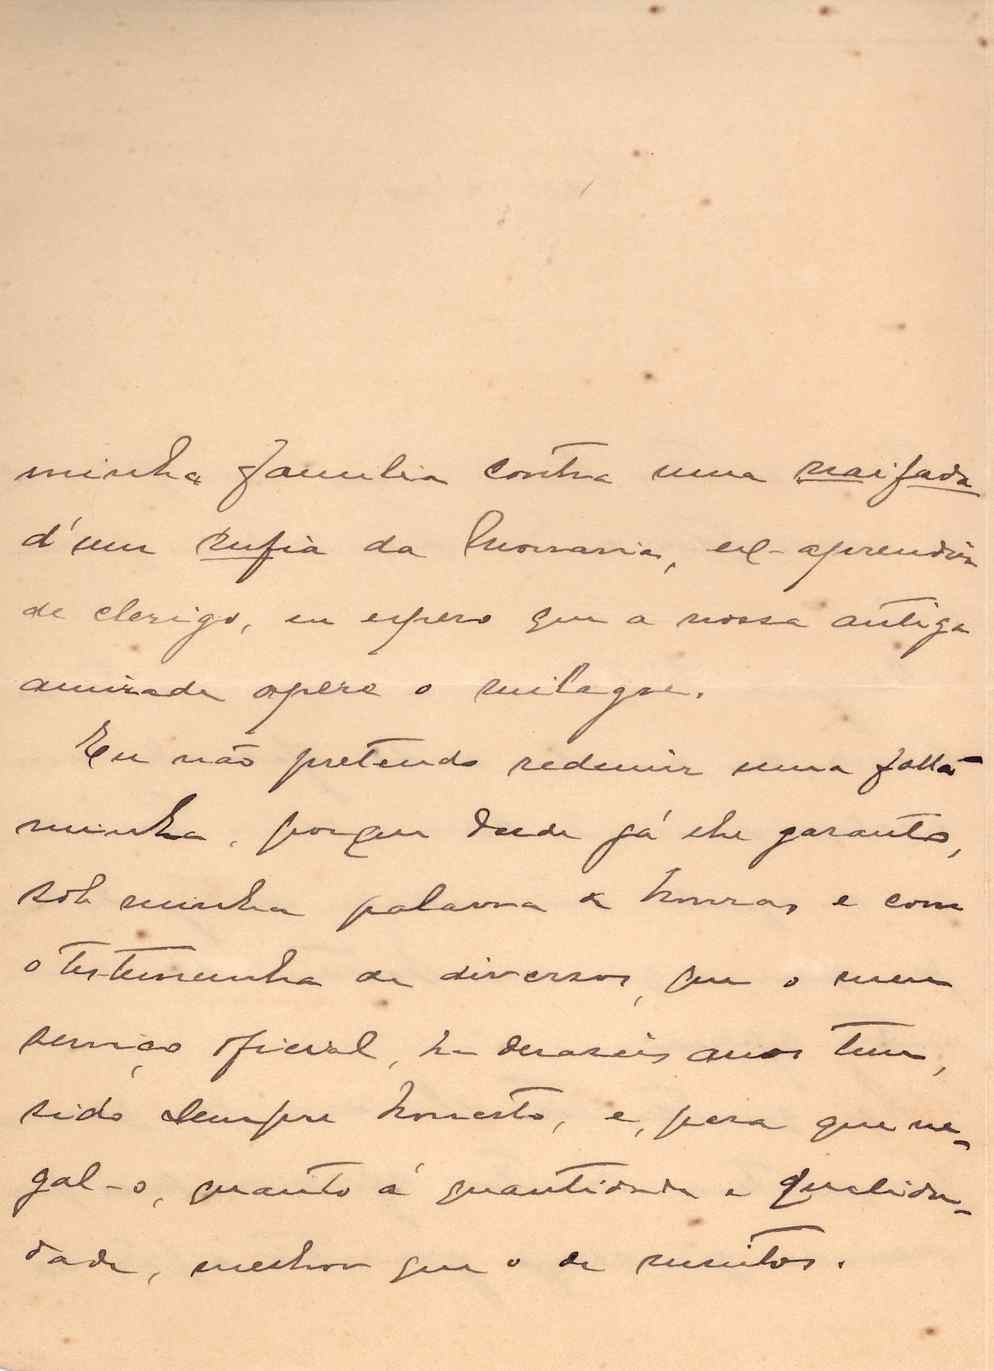 minha familia contra uma naifada
d'um rufia da Mouraria, ex-aprendiz
de clerigo, eu espero que a nossa antiga
amizade opere o milagre.
Eu não pretendo redimir uma falta
minha, porque desde já lhe garanto,
sob minha palavra de honra, e com
o testemunho de diversos, que o meu
serviço oficial, ha dezaseis anos tem,
sido sempre honesto, e, para que ne-
gal-o, quanto á quantidade e qualida-
dade, melhor que o de muitos.